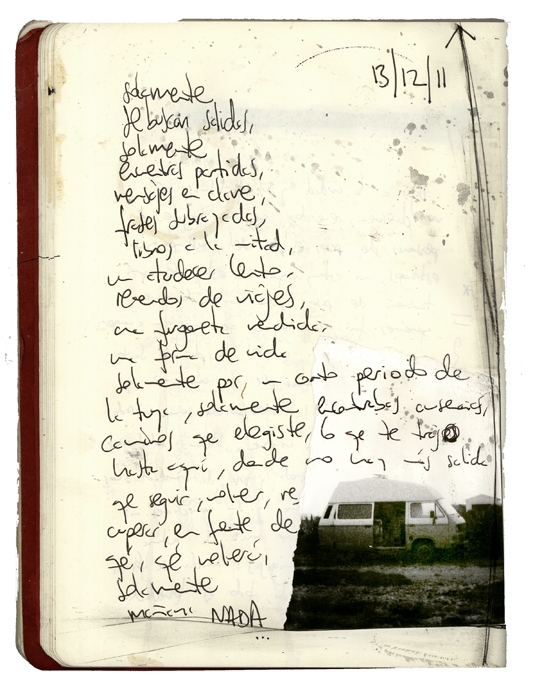 13/12/11
solamente
se buscan salidas,
solamente
encuentras partidas,
mensajes en clave,
frases subrayadas,
libros a la mitad,
un atardecer lento,
recuerdos de viajes,
una furgoneta vendida,
una forma de vida
solamente por, un corto periodo de
la tuya, solamente encontrabas ausencias,
caminos que elegiste, lo que te trajo
hasta aquí, donde no hay más salida
que seguir, volver, re
cuperar, en frente de
que, qué volverá,
solamente
mañana NADA
...